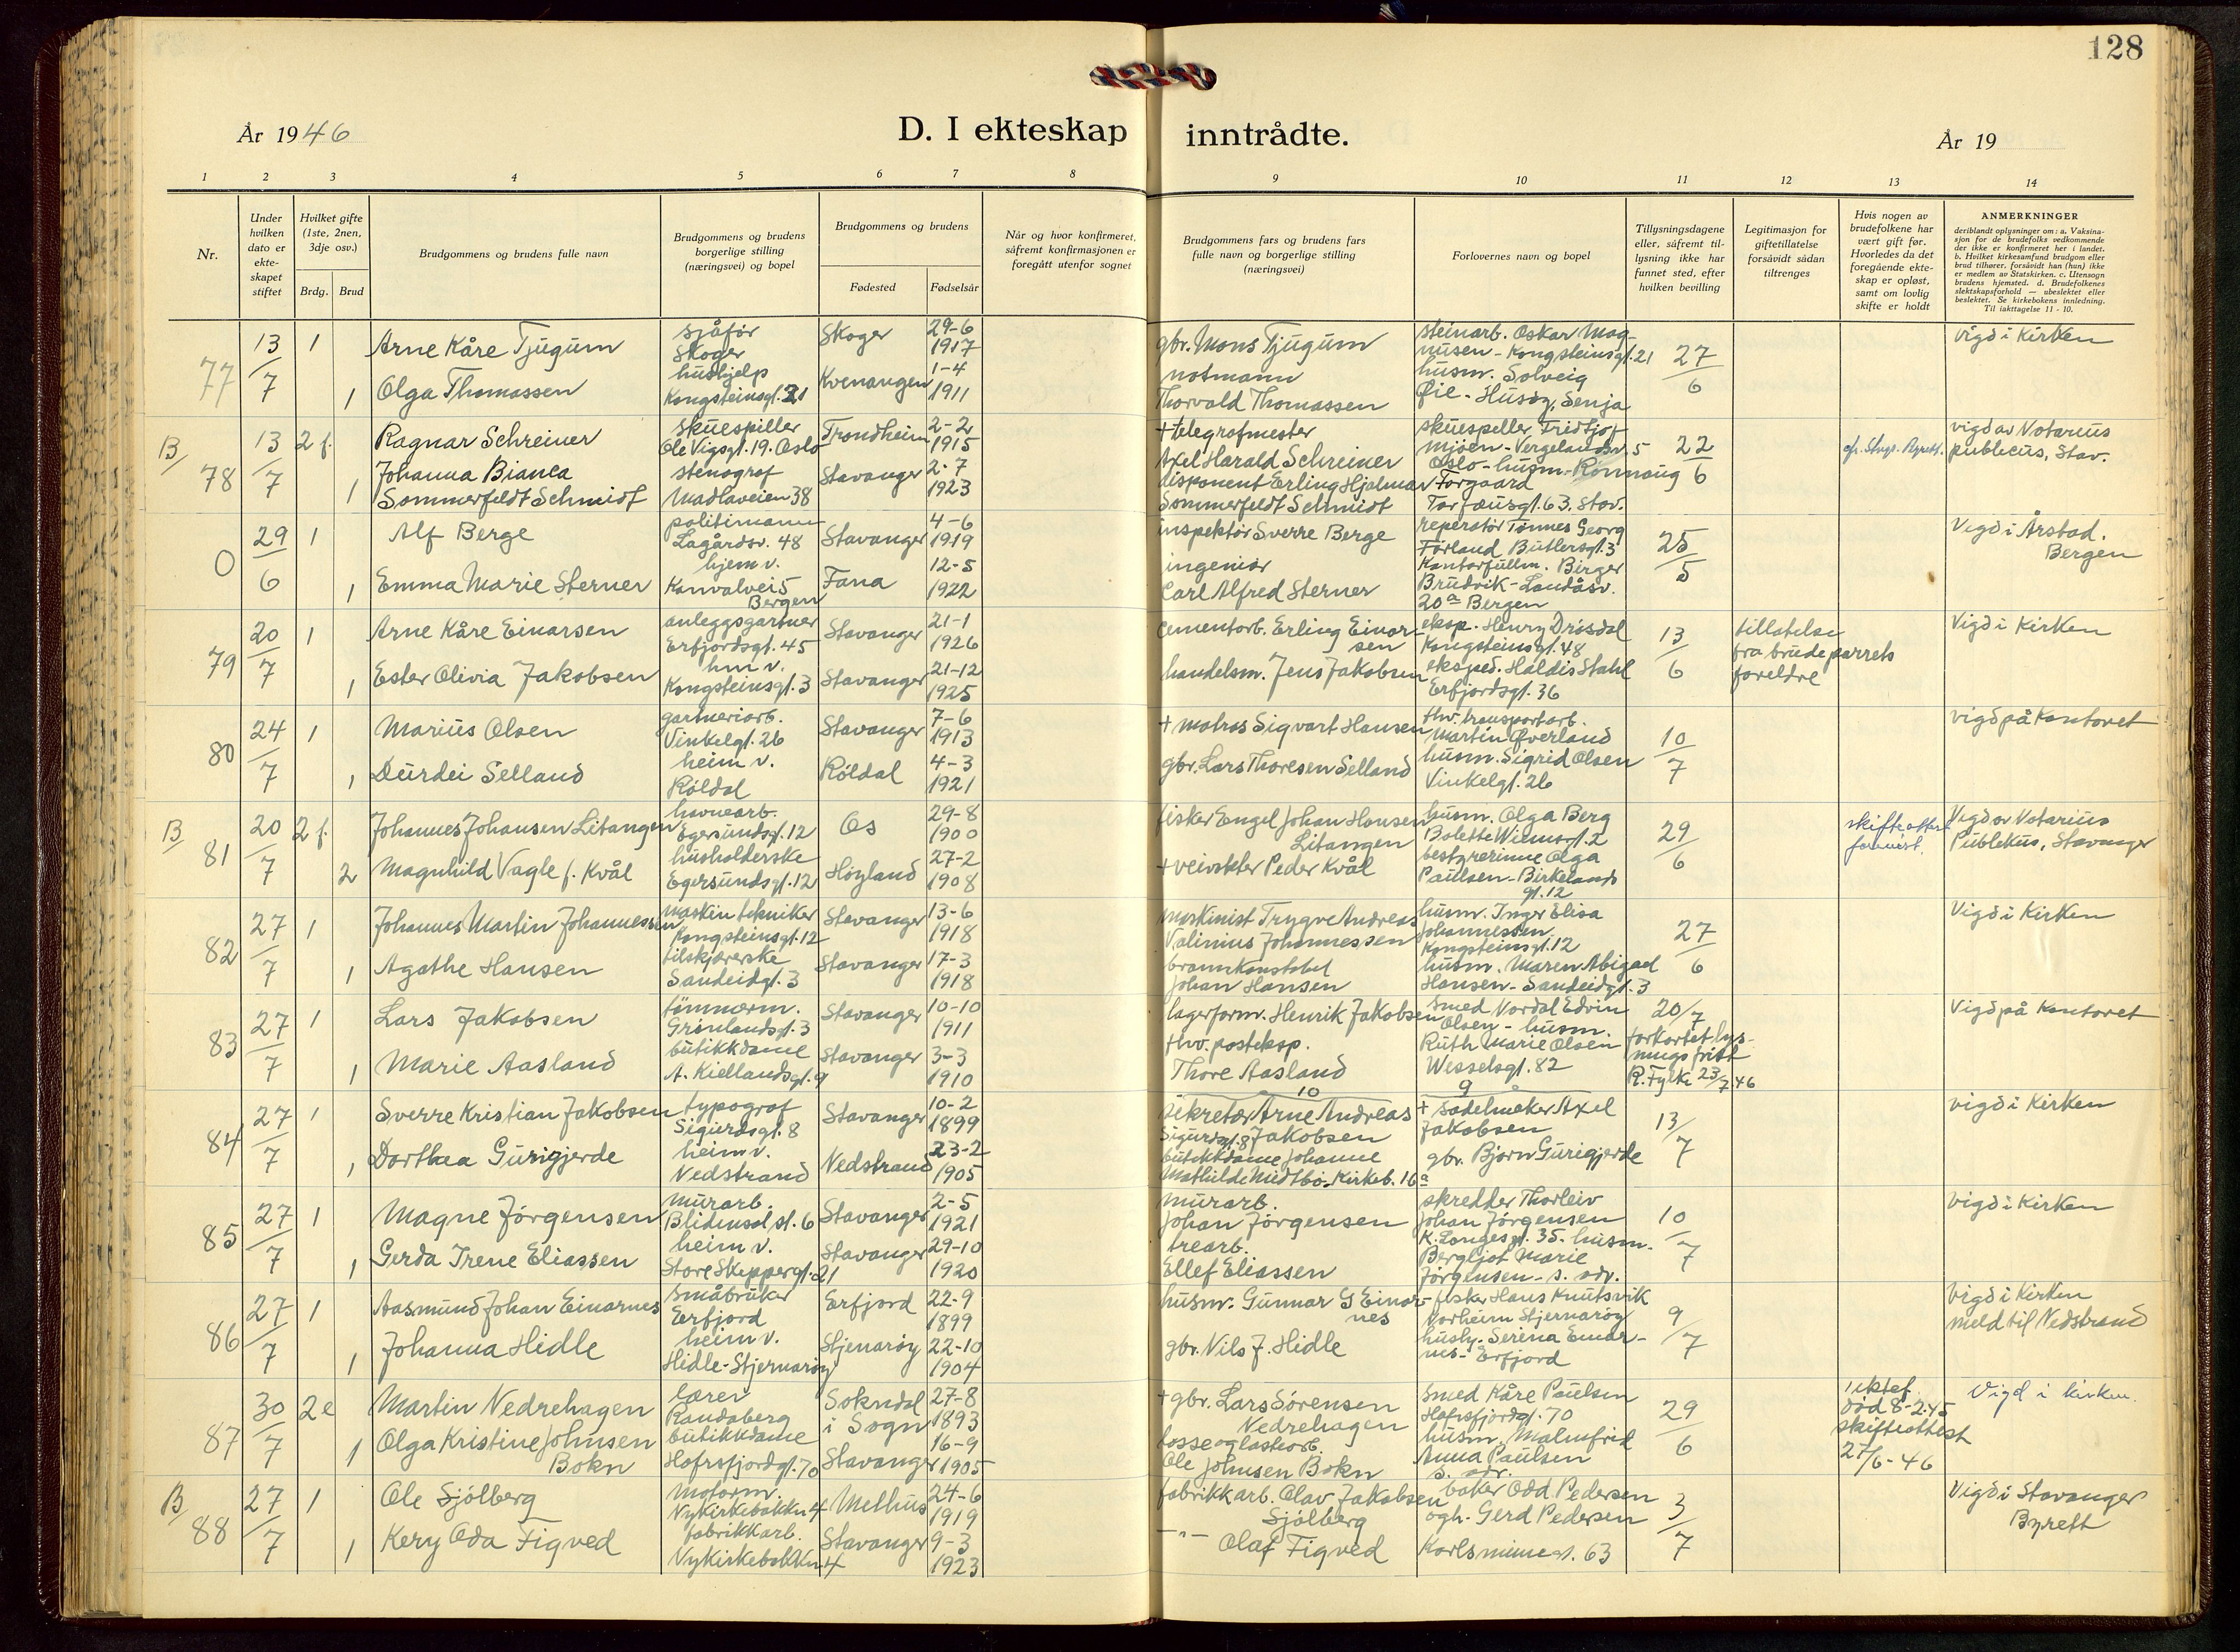 128
År 1946
D. I ekteskap inntrådte.
År 19
1 2 3 4 5 6 7 8 9 10 11 12 13 14
Nr.
Under hvilken dato er ekte-skapet stiftet
Hvilket gifte (1ste, 2nen, 3dje osv.)
Brdg. Brud
Brudgommens og brudens fulle navn
Brudgommens og brudens borgerlige stilling (næringsvei) og bopel
Brudgommens og brudens
Fødested Fødselsår
Når og hvor konfirmeret, såfremt konfirmasjonen er foregått utenfor sognet
Brudgommens fars og brudens fars fulle navn og borgerlige stilling (næringsvei)
Forlovernes navn og bopel
Tillysningsdagene eller, såfremt til-lysning ikke har funnet sted, efter hvilken bevilling
Legitimasjon for giftetillatelse forsåvidt sådan tiltrenges
Hvis nogen av brudefolkene har vært gift før. Hvorledes da det foregående ekte-skap er opløst, samt om lovlig skifte er holdt
ANMERKNINGER
deriblandt oplysninger om: a. Vaksina-sjon for de brudefolks vedkommende der ikke er konfirmeret her i landet. b. Hvilket kirkesamfund brudgom eller brud tilhører, forsåvidt han (hun) ikke er medlem av Statskirken. c. Utensogn brudens hjemsted. d. Brudefolkenes slektskapsforhold — ubeslektet eller beslektet. Se kirkebokens innledning. Til iakttagelse 11 - 10.
77 13/7 1 Arne Kåre Tjugum sjåfør Skoger Skoger 29-6 1917 gbr. Mons Tjugum steinarb. Oskar Mag-nusen - Kongsteinsgt. 21 27/6 vigd i Kirken
1 Olga Thomassen hushjelp Kongsteinsgt. 21 Kvenangen 1-4 1911 notmann Thorvald Thomassen husm. Solveig Øie - Husøy, Senja
B/ 78 13/7 2 f. Ragnar Schreiner skuespiller Ole Vigsgt. 19. Oslo Trondheim 2-2 1915 + telegrafmester Axel Harald Schreiner skuespeller Fridtjof Mjøen - Vergelandsv. 5 Oslo - husm. Ronnaug 22/6 vigd av Notarius publicus, Stav.
1 Johanna Bianca Sommerfeldt Schmidt stenograf Madlaveien 38 Stavanger 2-7 1923 disponent Erling Hjalmar Sommerfeldt Schmidt Torgaard Torfæusgt. 63. Stav.
0 29/6 1 Alf Berge politimann Lagårdsv. 48 Stavanger 4-6 1919 inspektør Sverre Berge reperatør Tønnes Georg Førland Butlersgt. 3 25/5 Vigd i Årstad. Bergen
1 Emma Marie Sterner hjem v. Konvalvei 5 Bergen Fana 12-5 1922 ingeniør Carl Alfred Sterner Kontorfullm. Birger Brudvik - Landåsv. 20a Bergen
79 20/7 1 Arne Kåre Einarsen anleggsgartner Erfjordsgt. 45 Stavanger 21-1 1926 cementarb. Erling Einar-sen eksp. Henry Drösdal Kongsteinsgt. 48 13/6 tillatelse fra brudeparrets foreldre Vigd i Kirken
1 Ester Olivia Jakobsen hm v. Kongsteinsgt. 3 Stavanger 21-12 1925 handelsm. Jens Jakobsen eksped. Haldis Stahl Erfjordsgt. 36
80 24/7 1 Marius Olsen gartneriarb. Vinkelgt. 26 Stavanger 7-6 1913 + matros Sigvart Hansen fhv. transportarb. Martin Øverland 10/7 vigd på Kontoret
1 Durdei Selland heim v. Röldal Röldal 4-3 1921 gbr. Lars Thoresen Selland husm. Sigrid Olsen Vinkelgt. 26
B/ 81 20/7 2 f. Johannes Johansen Litangen havnearb. Egersundsgt. 12 Os 29-8 1900 fisker Engel Johan Hansen Litangen husm. Olga Berg Bolette Wiemsgt. 2 29/6 skifteattest Vigd av Notarius Publekus, Stavanger
2 Magnhild Vagle f. Kvål husholderske Egersundsgt. 12 Höyland 27-2 1908 + veivokter Peder Kvål bestyrerinne Olga Paulsen - Birkelands gt. 12
82 27/7 1 Johannes Martin Johannessen maskintekniker Kongsteinsgt. 12 Stavanger 13-6 1918 maskinist Trygve Andreas Valinius Johannessen husm. Inger Elisa Johannessen Kongsteinsgt. 12 27/6 Vigd i Kirken
1 Agathe Hansen tilskjærerske Sandeidgt. 3 Stavanger 17-3 1918 brannkonstabel Johan Hansen husm. Maren Abigael Hansen - Sandeidgt. 3
83 27/7 1 Lars Jakobsen tømmerm. Grönlandsgt. 3 Stavanger 10-10 1911 lagerform. Henrik Jakobsen Smed Nordal Edvin Olsen - husm. 20/7 forkortet lys-nings frist R. Fylke 23/7 46 Vigd på Kontoret
1 Marie Aasland butikkdame A. Kiellandsgt. 9 Stavanger 3-3 1910 fhv. posteksp. Thore Aasland Ruth Marie Olsen Wesselsgt. 82
10 9
84 27/7 1 Sverre Kristian Jakobsen typograf Sigurdsgt. 8 Stavanger 10-2 1899 sekretær Arne Andreas Jakobsen Sigurdsgt. 8 + sadelmaker Axel Jakobsen 13/7 vigd i Kirken
1 Dorthea Gurigjerde heim v. Nedstrand Nedstrand 23-2 1905 butikkdame Johanne Mathilde Midtbø - Kirkeb. 16a gbr. Bjorn Gurigjerde
85 27/7 1 Magne Jörgensen murarb. Blidensol st. 6 Stavanger 2-5 1921 murarb. Johan Jörgensen skredder Thorleiv Johan Jörgensen K. Langesgt. 35. husm. 10/7 vigd i Kirken
1 Gerda Irene Eliassen heim v. Store Skippergt. 21 Stavanger 29-10 1920 trearb. Ellef Eliassen Bergljot Marie Jörgensen - s. adr.
86 27/7 1 Aasmund Johan Einarnes Småbruker Erfjord Erfjord 22-9 1899 husm. Gunnar G Einar-nes fisker Hans Knutsvik Norheim Stjernarøy 9/7 vigd i Kirken meld til Nedstrand
1 Johanna Hidle heim v. Hidle - Stjernarøy Stjenarøy 22-10 1904 gbr. Nils J. Hidle hushj. Serina Einar-nes - Erfjord
87 30/7 2 e Martin Nedrehagen lærer Randaberg Sokndal i Sogn 27-8 1893 + gbr. Lars Sörensen Nedrehagen Smed Kåre Paulsen Hafrsfjordgt. 70 29/6 1 ektef. död 8-2-45 skifteattest 27/6-46 Vigd i kirken
1 Olga Kristine Johnsen Bokn butikkdame Hafrsfjordgt. 70 Stavanger 16-9 1905 Ole Johnsen Bokn husm. Malmfrid Anna Paulsen s. adr.
B/ 88 27/7 1 Ole Sjölberg Nykirkebakken 4 Melhus 24-6 1919 fabrikkarb. Olav Jakobsen Sjölberg baker Odd Pedersen 3/7 Vigd i Stavanger Byrett
1 Kery Oda Figved fabrikkarb. Nykirkebakken 4 Stavanger 9-3 1923 —"— Olaf Figved ogh. Gerd Pedersen Karlsminnegt. 63